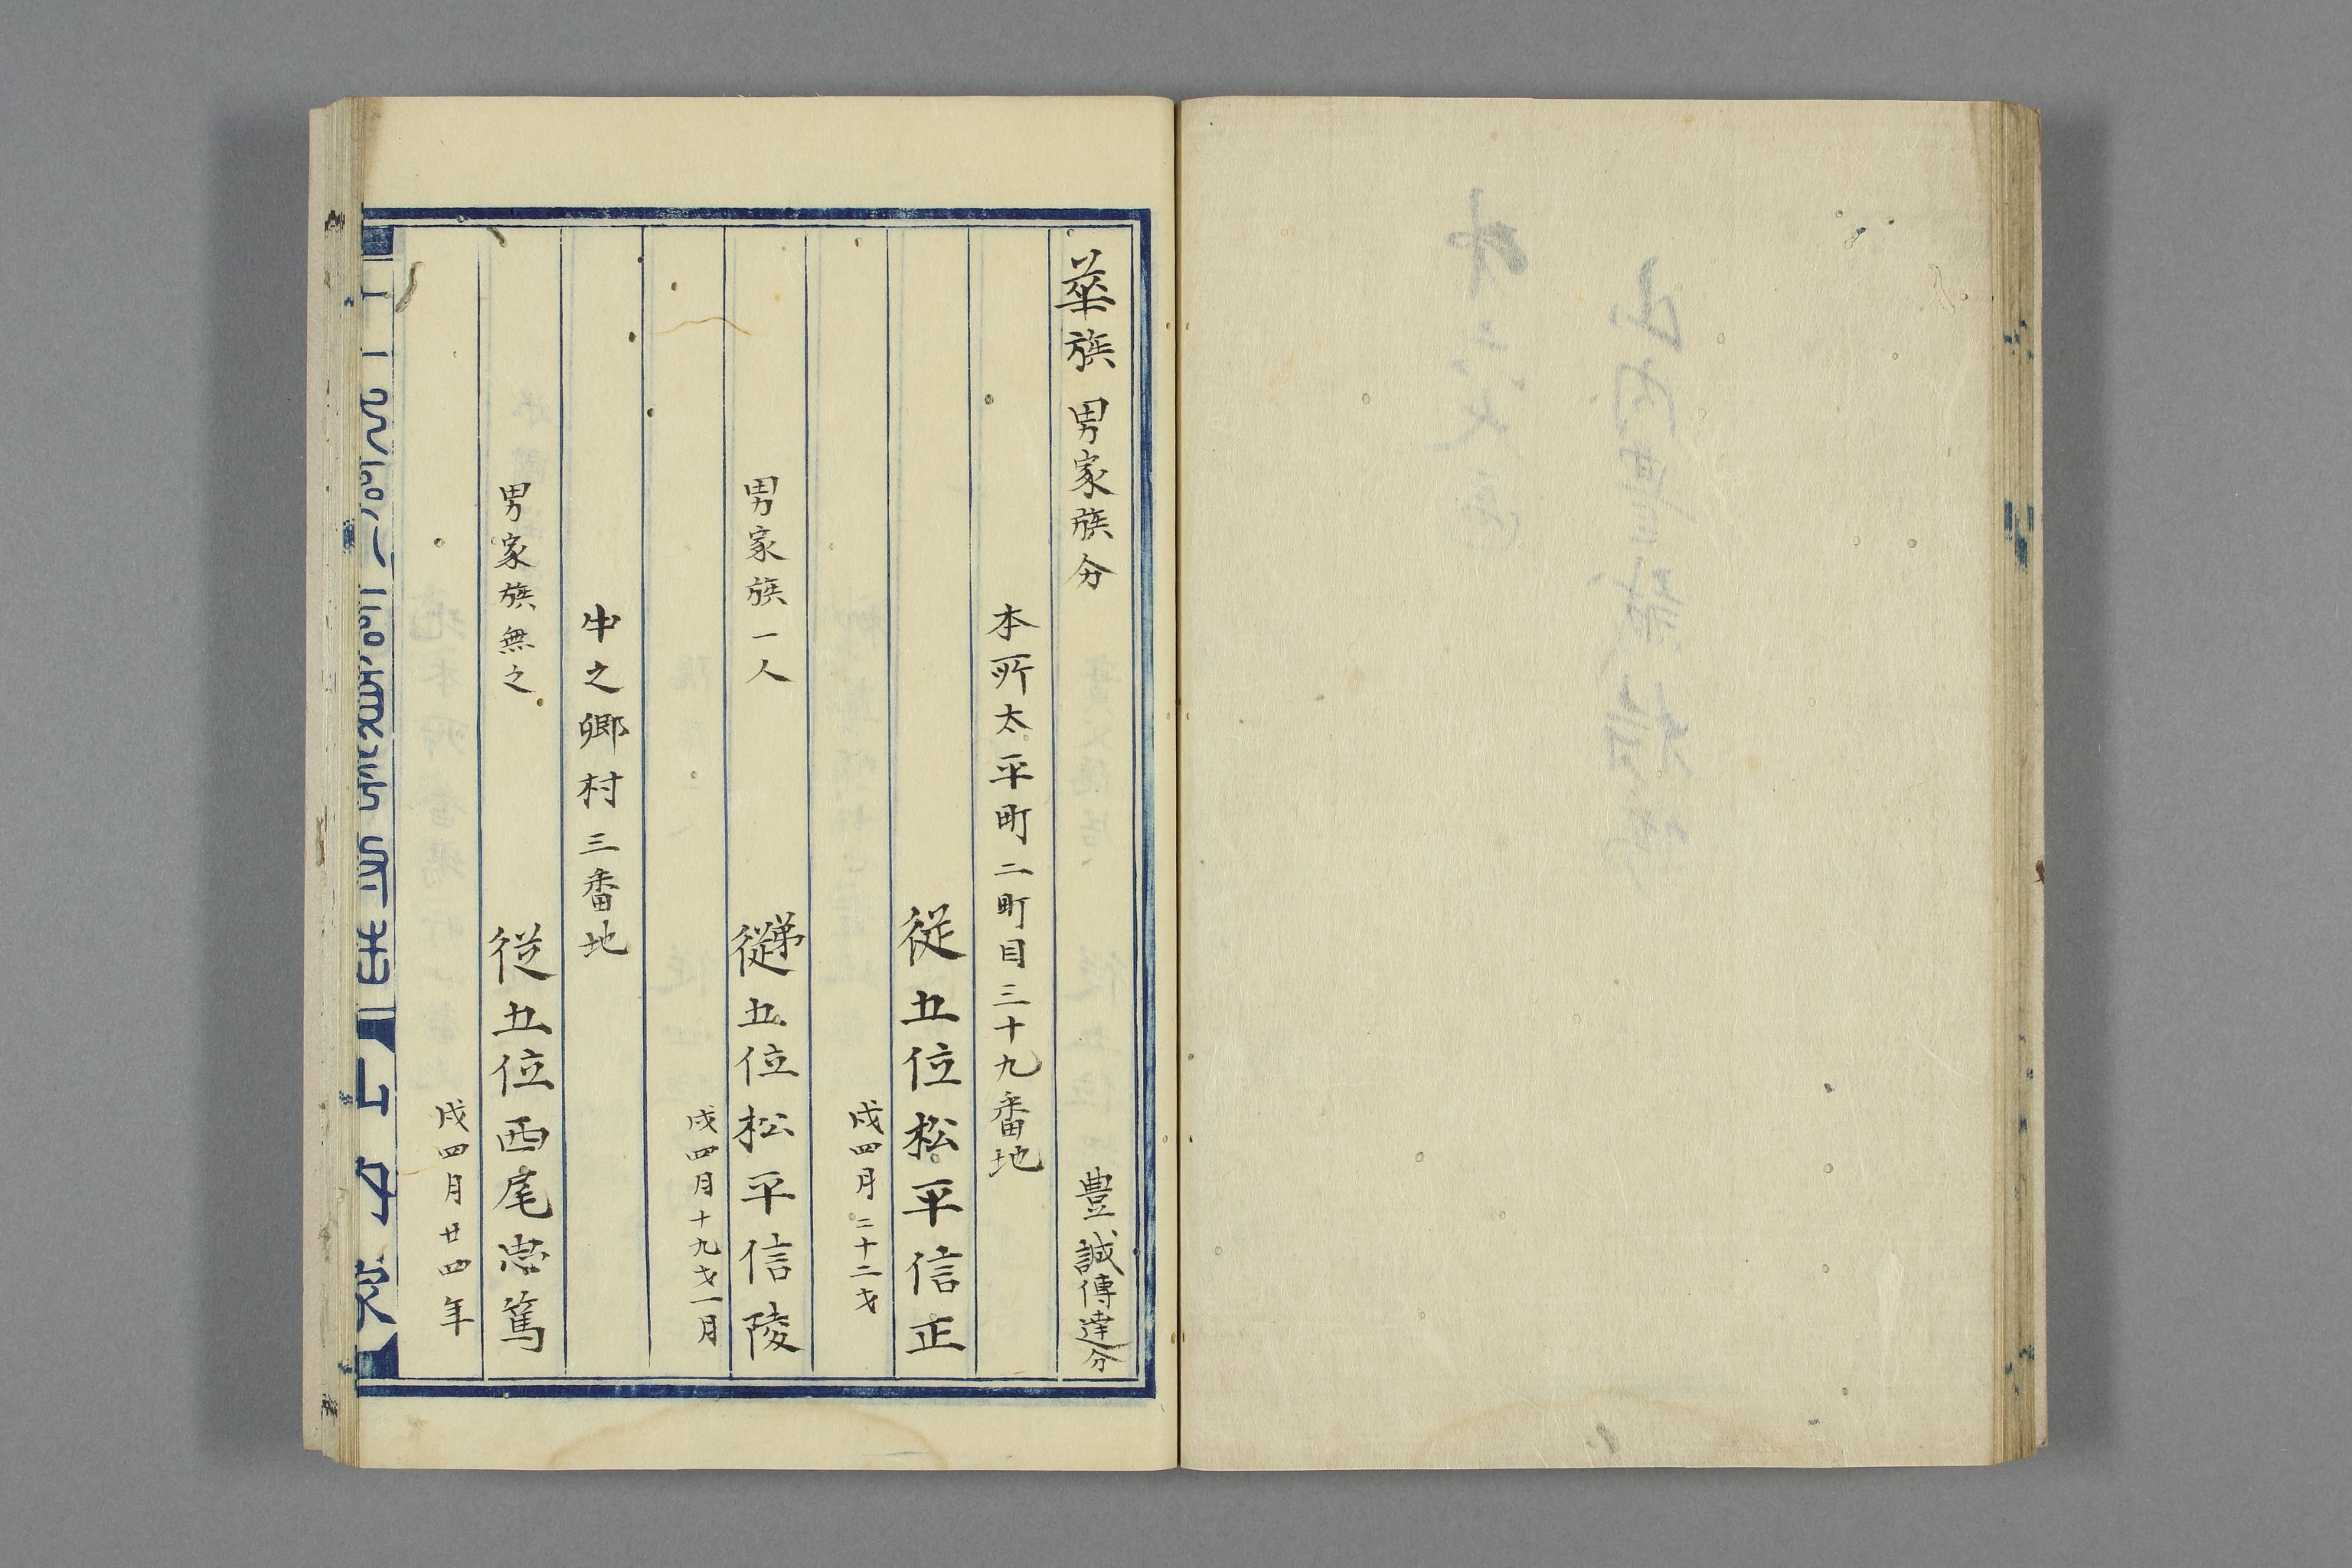 華族男家族分　豊誠傳達分
本所太平町二町目三十九番地
従五位松平信正
戌四月二十二才
男家族一人　弟従五位松平信陵
戌四月十九才一月
中之郷村三番地
男家族無之　従五位西尾忠篤
戌四月廿四年